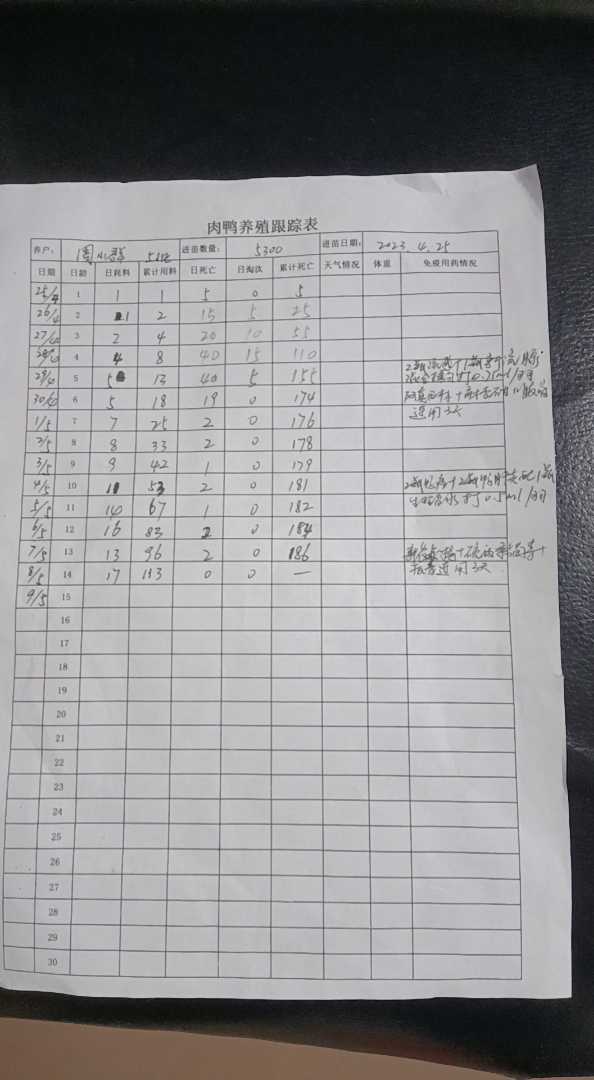 肉鸭养殖跟踪表
养户： 进苗数量： 5300 进苗日期： 2023.4.25
日期 日龄 日耗料 累计用料 日死亡 日淘汰 累计死亡 天气情况 体重 免疫用药情况
25/4 1 1 1 5 0 5
26/4 2 1 2 15 5 25
27/4 3 2 4 20 10 55
28/4 4 4 8 40 15 110
29/4 5 5 13 40 5 155
30/4 6 5 18 19 0 174
1/5 7 7 25 2 0 176
连用3天
2/5 8 8 33 2 0 178
3/5 9 9 42 1 0 179
4/5 10 11 53 2 0 181
5/5 11 14 67 1 0 182
0.5ml/只
6/5 12 16 83 2 0 184
7/5 13 13 96 2 0 186
8/5 14 17 113 0 0 —
连用3天
9/5 15
16
17
18
19
20
21
22
23
24
25
26
27
28
29
30